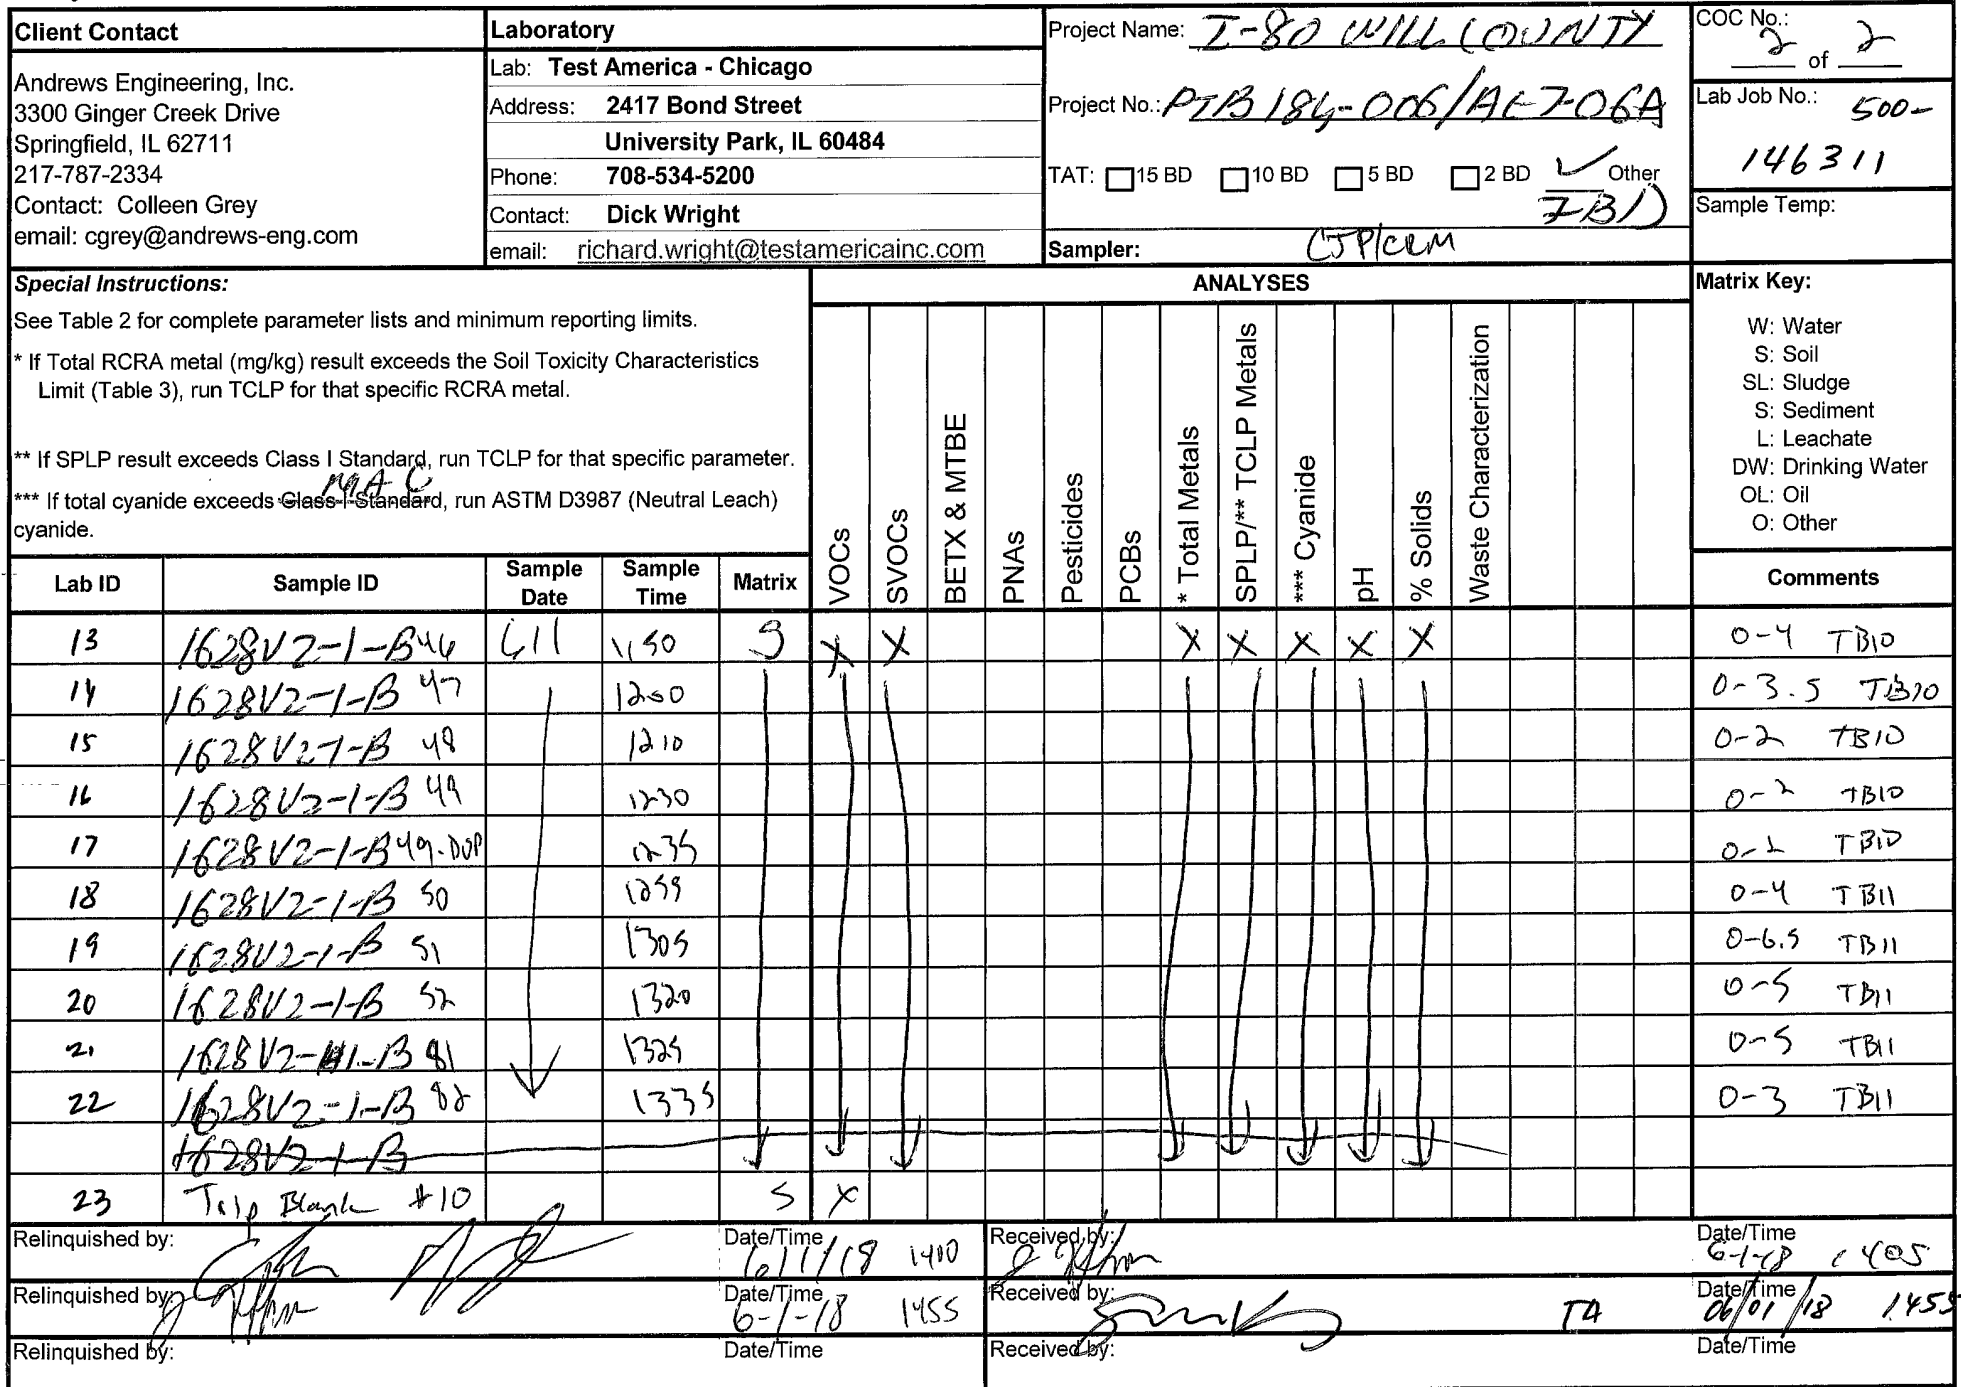 Client Contact
Andrews Engineering, Inc.
3300 Ginger Creek Drive
Springfield, IL 62711
217-787-2334
Contact: Colleen Grey
email: cgrey@andrews-eng.com
Laboratory
Lab: Test America - Chicago
Address: 2417 Bond Street
University Park, IL 60484
Phone: 708-534-5200
Contact: Dick Wright
email: richard.wright@testamericainc.com
Project Name: I-80 WILL COUNTY
Project No.: PTB 184-006/AE7-06A
TAT: 15 BD 10 BD 5 BD 2 BD ✓ Other
7BD
Sampler: CJP/CRM
COC No.:
2 of 2
Lab Job No.: 500-
146311
Sample Temp:
Special Instructions:
See Table 2 for complete parameter lists and minimum reporting limits.
* If Total RCRA metal (mg/kg) result exceeds the Soil Toxicity Characteristics
Limit (Table 3), run TCLP for that specific RCRA metal.
** If SPLP result exceeds Class I Standard, run TCLP for that specific parameter.
MAC
*** If total cyanide exceeds Class I Standard, run ASTM D3987 (Neutral Leach)
cyanide.
ANALYSES
VOCs
SVOCs
BETX & MTBE
PNAs
Pesticides
PCBs
* Total Metals
SPLP/** TCLP Metals
*** Cyanide
pH
% Solids
Waste Characterization
Matrix Key:
W: Water
S: Soil
SL: Sludge
S: Sediment
L: Leachate
DW: Drinking Water
OL: Oil
O: Other
Lab ID Sample ID Sample Date Sample Time Matrix Comments
13 1628V2-1-B46 6/1 1150 S X X X X X X X 0-4 TB10
14 1628V2-1-B 47 1200 0-3.5 TB10
15 1628V2-1-B 48 1210 0-2 TB10
16 1628V2-1-B 49 1230 0-2 TB10
17 1628V2-1-B49-DUP 1235 TB10
18 1628V2-1-B 50 1255 0-4 TB11
19 1628V2-1-B 51 1305 0-6.5 TB11
20 1628V2-1-B 52 1320 0-5 TB11
21 1628V2-1-B 81 1325 0-5 TB11
22 1628V2-1-B 82 1335 0-3 TB11
1628V2-1-B
23 Trip Blank #10 S X
Relinquished by: Date/Time 6/1/18 1400 Received by: Date/Time 6-1-18 1405
Relinquished by: Date/Time 6-1-18 1455 Received by: TA Date/Time 06/01/18 1455
Relinquished by: Date/Time Received by: Date/Time